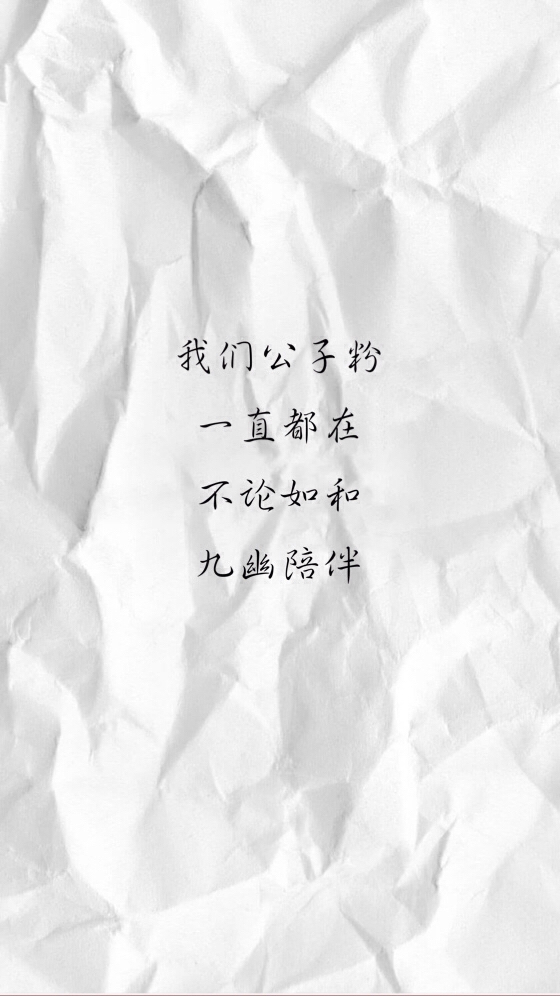 我们公子粉
一直都在
不论如和
九幽陪伴